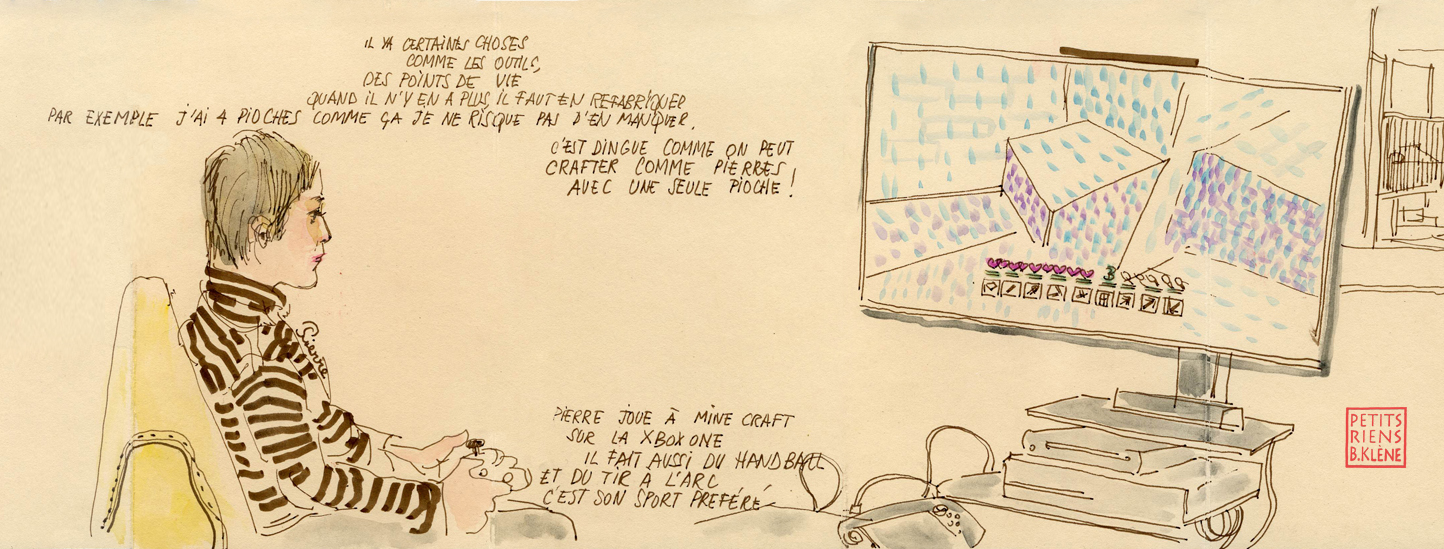 IL YA CERTAINES CHOSES
COMME LES OUTILS,
DES POINTS DE VIE
QUAND IL N'Y EN A PLUS, IL FAUT EN REFABRIQUER
PAR EXEMPLE J'AI 4 PIOCHES COMME ÇA JE NE RISQUE PAS D'EN MANQUER.
C'EST DINGUE COMME ON PEUT
CRAFTER COMME PIERRES
AVEC UNE SEULE PIOCHE!
Pierre
PIERRE JOUE À MINE CRAFT
SUR LA XBOX ONE
IL FAIT AUSSI DU HANDBALL
ET DU TIR A L'ARC
C'EST SON SPORT PREFÉRÉ
PETITS
RIENS
B.KLÈNE